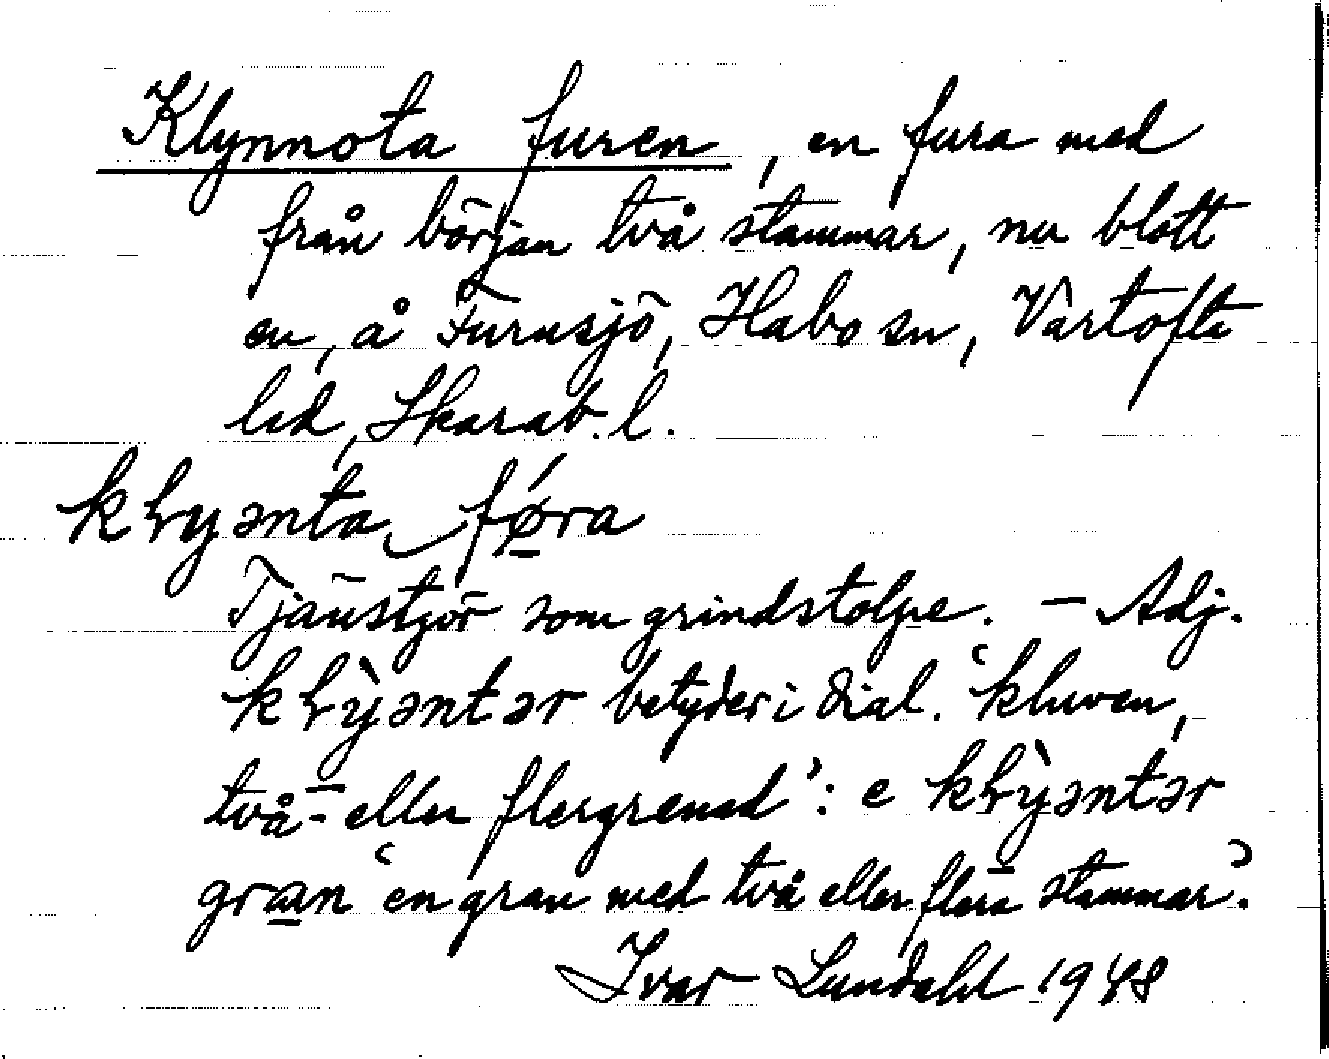 Klynnota furen, en fura med
från början två stammar, nu blott
en, å Furusjö, Habo sn, Vartofta
hd, Skarab. l.
klyənta føra
Tjänstgör som grindstolpe. – Adj.
klỳəntər betyder i dial. ‘kluven,
två- eller flergrenad’: e klỳəntər
gran ‘en gran med två eller flera stammar’.
Ivar Lundahl 1948